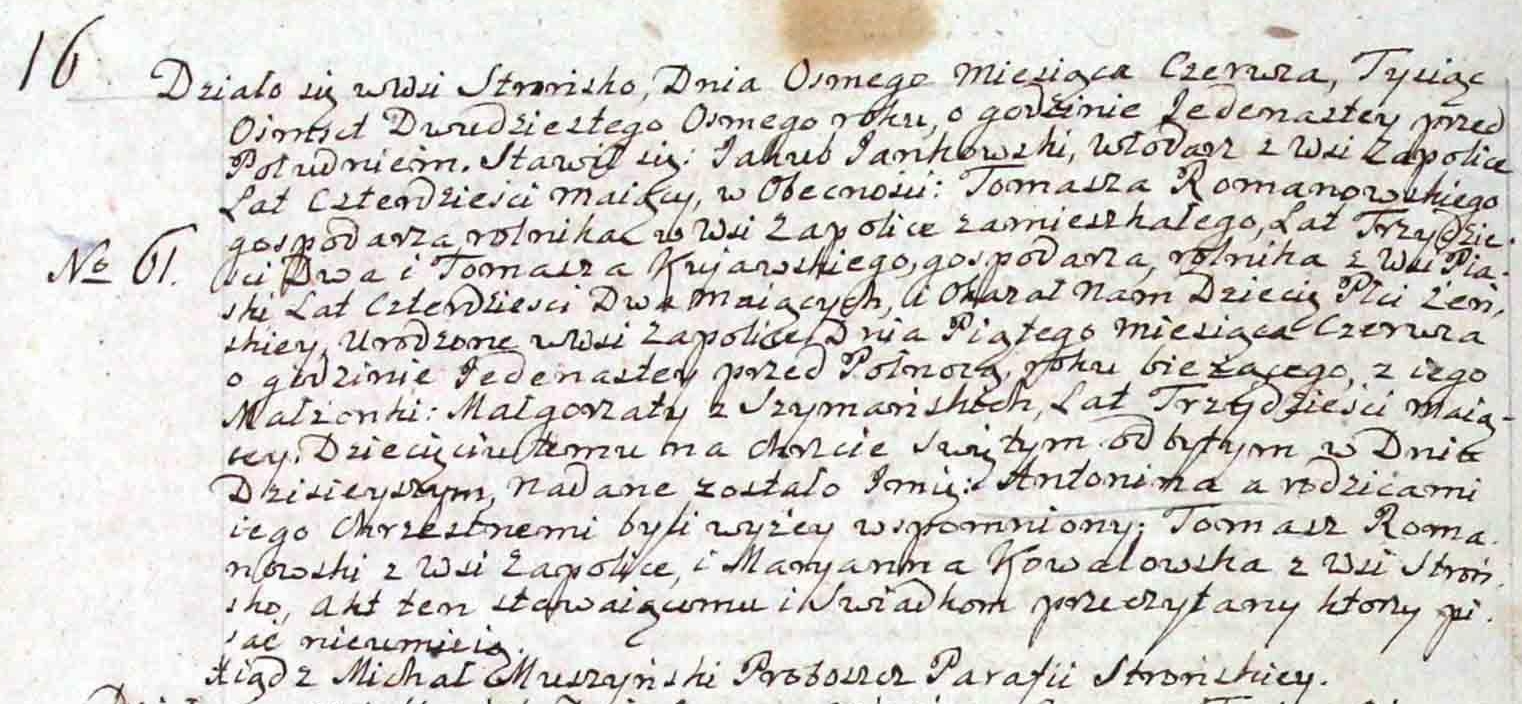 16
Działo się w Wsi Strońsko, Dnia Osmego Miesiąca Czerwca, Tysiąc
Ośmset Dwudziestego Osmego roku, o godzinie Jedenastey przed
Południem. Stawił się: Jakub Jankowski, włodarz z Wsi Zapolice
Lat Czterdzieści maiący, w Obecności: Tomasza Romanowskiego
gospodarza, rolnika w Wsi Zapolice zamieszkałego, Lat Trzydzie-
No 61.
ści Dwa i Tomasza Kujawskiego, gospodarza, rolnika z Wsi Pia-
ski Lat Czterdzieści Dwa maiących, i Okazał Nam Dziecię Płci Żeń,
skiey, Urodzone w Wsi Zapolice, Dnia Piątego Miesiąca Czerwca
o godzinie Jedenastey przed Północą, roku bieżącego, z iego
Małżonki: Małgorzaty z Szymańskich, Lat Trzydzieści maią-
cey. Dziecięciu temu na chrzcie świętym odbytym w Dniu
Dzisieyszym, nadane zostało Imię: Antonina a rodzicami
iego Chrzestnemi byli wyżey wspomniony; Tomasz Roma-
nowski z Wsi Zapolice, i Maryanna Kowalowska z Wsi Stroń-
sko, Akt ten stawaiącemu i Swiadkom przeczytany ktory pi-
sać nieumieią.
Xiądz Michał Muszyński Proboszcz Parafii Strońskiey.